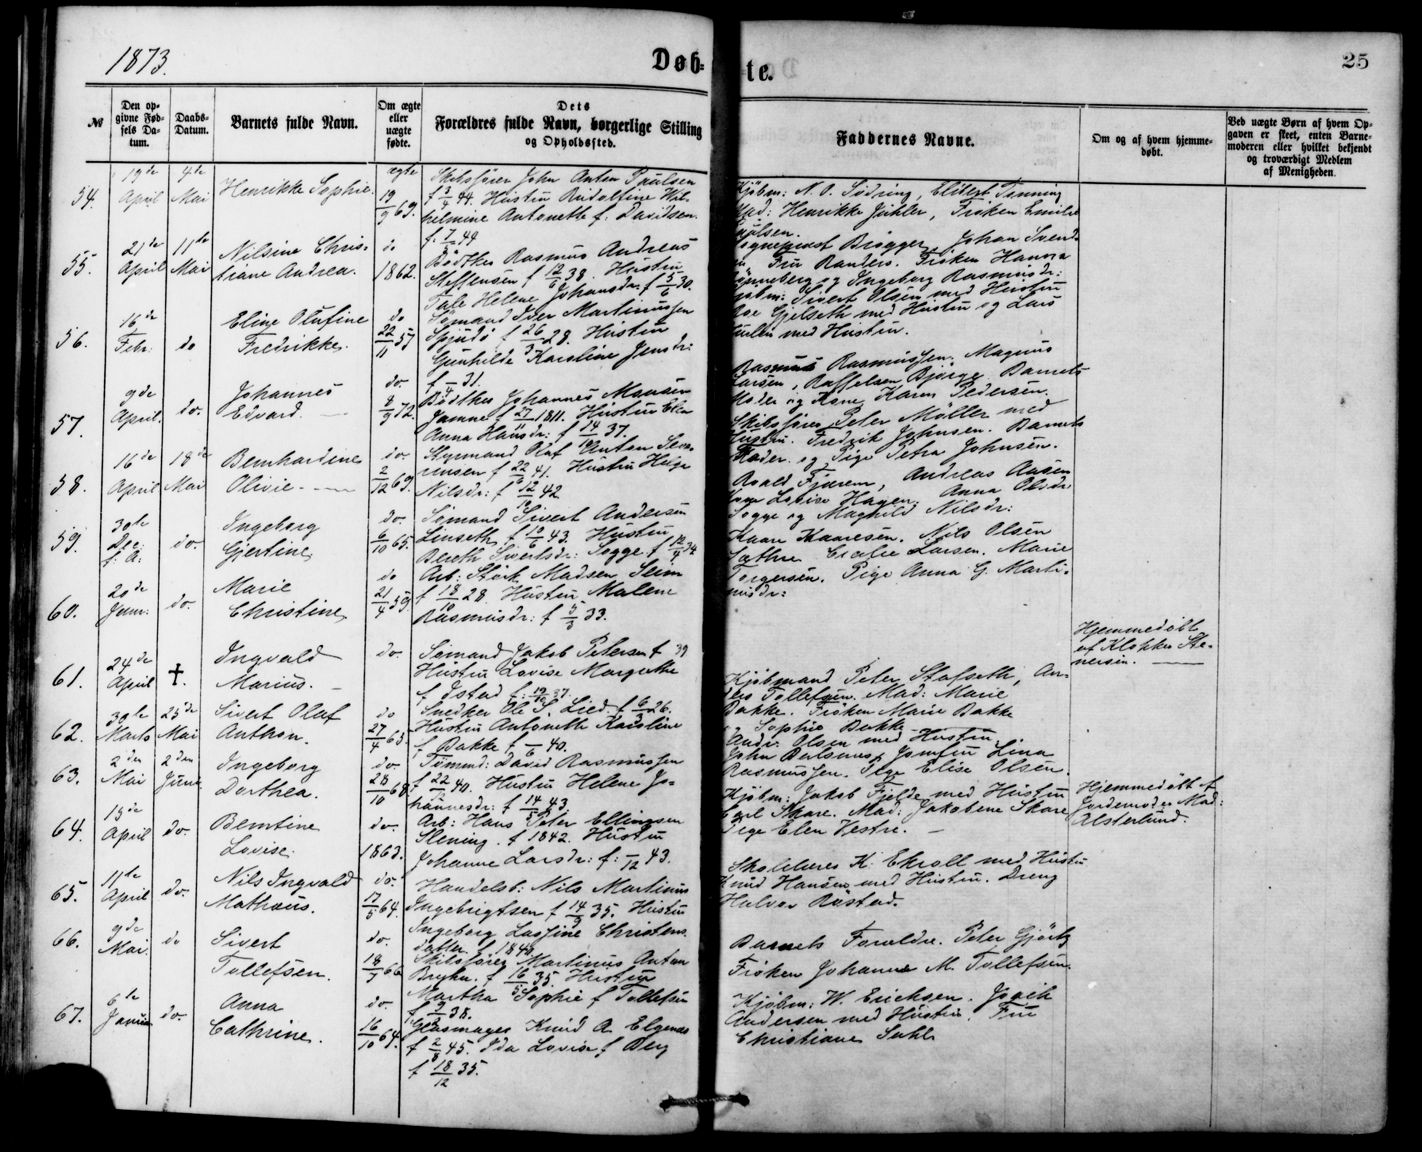 1873.
Døb-
te.
25
№
Den op-
givne Fød-
sels Da-
tum.
Daabs-
Datum.
Barnets fulde Navn.
Om ægte
eller
uægte
fødte.
Dets
Forældres fulde Navn, borgerlige Stilling
og Opholdssted.
Faddernes Navne.
Om og af hvem hjemme-
døbt.
Ved uægte Børn af hvem Op-
gaven er skeet, enten Barne-
moderen eller hvilket bekjendt
og troværdigt Medlem
af Menigheden.
54.
19de
April
4de
Mai
Henrikke Sophie.
ægte
19/9 69.
Skibsfører John Anton Poulsen
f 3/4 44. Hustru Rudolfine Wil-
helmine Antonette f: Davidsen.
f. 7/7 49
Kjøbm: N. O. Sødring, Ellert Tønning
Mad: Henrikke Juhler, Frøken Emilie
55.
21de
April
11te
Mai
Nilsine Chris-
tiane Andrea.
do
1862.
Bødtker Rasmus Andreas
Steffensen f 12/6 38. Hustru
Tale Helene Johansdr. f 5/6 30.
Sogneprest Brøgger, Johan Svend-
Fru Randers. Frøken Hanna
Rønneberg og Ingeborg Rasmusdr:
56.
16de
Febr:
do
Eline Olufine
Fredrikke.
do
22/11 57
Sømand Iver Martinussen
f 26/3 28. Hustru
Gunhilde Karoline Jensdr:
31.
Sivert Olsen med Hustru
Gjelseth med Hustru og Lars
med Hustru.
57.
9de
April.
do.
Johannes
Edvard.
do.
8/9 72.
Bødtker Johannes Monsen
f 27/11 1811. Hustru Elen
Anna Hansdr: f 14/4 37.
Rasmus Rasmussen. Magnus
Larsen, Raffelsen Bjørge, Barnets
Moder og Kone Karen Pedersen.
58.
16de
April
18de
Mai
Bernhardine
Olivie.
do.
2/12 69.
Styrmand Olaf Anton Søren-
rensen f 22/6 41. Hustru Helge
Nilsdr: f 12/10 42
Skibsfører Peter Møller med
Hustru. Fredrik Johnsen. Barnets
Moder. og Pige Petra Johnsen.
59.
30te
Dec:
f. A:
do.
Ingeborg
Gjertine
do.
6/10 65.
Sømand Sivert Andersen
Linseth, f 10/6 43. Hustru
Bereth Sivertsdr: Sogge f 12/4 34
Roald Fjærem, Andreas Aasen
Lovise Hagen. Anna Olsdr:
Sogge og Magnild Nilsdr:
60.
20de
Janr:
do.
Marie
Christine
do
21/4 59
Arb: Størk Madsen Slim
f 18/10 28. Hustru Malene
Rasmusdr: f 5/3 33.
Kaare Kaaresen. Nils Olsen
Sæther Larsen. Marie
Torgersen. Pige Anna G. Marti-
nusdr:
61.
24de
April
†.
Ingvald
Marius.
do.
Sømand Jakob Petersen f 39
Hustru Lovise Margrethe
f Istad f: 19/10 37.
Hjemmedøbt
af Klokker Ste-
nersen.
62.
30te
Marts
25de
Mai
Sivert Olaf
Anthon.
do
27/4 63
Snedker Ole S. Lied. f 6/3 26.
Hustru Antonette Karoline
f Bakke f 7/6 40.
Kjøbmand Peter Stafseth, An-
ders Tollefsen. Mad: Marie
Bakke. Frøken Marie Bakke
og Sophie Bakke
63.
2den
Mai
2den
Juni
Ingeborg
Dorthea.
do.
28/10 68
Tømmd: David Rasmussen
f 22/ 40. Hustru Helene Jo-
hannesdr: f 14/5 43.
Andr. Olsen med Hustru.
John Jomfru Lina
Rasmussen. Pige Elise Olsen.
64.
15de
April
do.
Berntine
Lovise.
do.
1863.
Arb: Hans Peter Ellingsen
Slening. f 1842. Hustru
Johanne Larsdr: f. 7/12 43.
Kjøbm: Jakob Fjelde med Hustru
Egil Skare. Mad: Jakobene Skare
Pige Elen Vestre.
Hjemmedøbt af
Jordemoder Mad:
Alsterlund.
65.
11te
April
do.
Nils Ingvald
Mathæus.
do.
17/5 64.
Handelsb: Nils Martinus
Ingebrigtsen f 14/9 35. Hustru
Ingeborg Lassine Christens-
datter f 1840.
Skolelærer K. Ekroll med Hustru
Knud Hansen med Hustru. Dreng
Halvor Røstad.
66.
9de
Mai.
do
Sivert
Tollefsen.
do.
18/7 66
Skibsfører Martinus Anton
Bryhn. f 16/5 35. Hustru
Martha Sophie f Tollefsen
f 9/2 38.
Barnets Forældre. Peter Gjørtz
Frøken Johanne M. Tollefsen.
67.
6te
Januar
do.
Anna
Cathrine.
do
16/10 64.
Glasmager Knud A. Elgenes
f 2/8 45. Ida Lovise f Berg
f 18/12 35.
Kjøbm: W. Ericksen.
Andersen med Hustru. Fru
Christiane Sahl